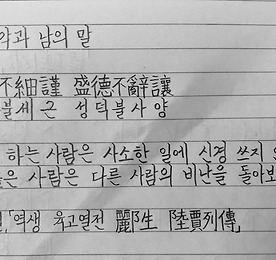 각과 남의 말
不細謹 盛德不辭讓
불세근 성덕불사양
하는 사람은 사소한 일에 신경 쓰지
은 사람은 다른 사람의 비난을 돌아보
「역생 육고열전 酈生 陸賈列傳」